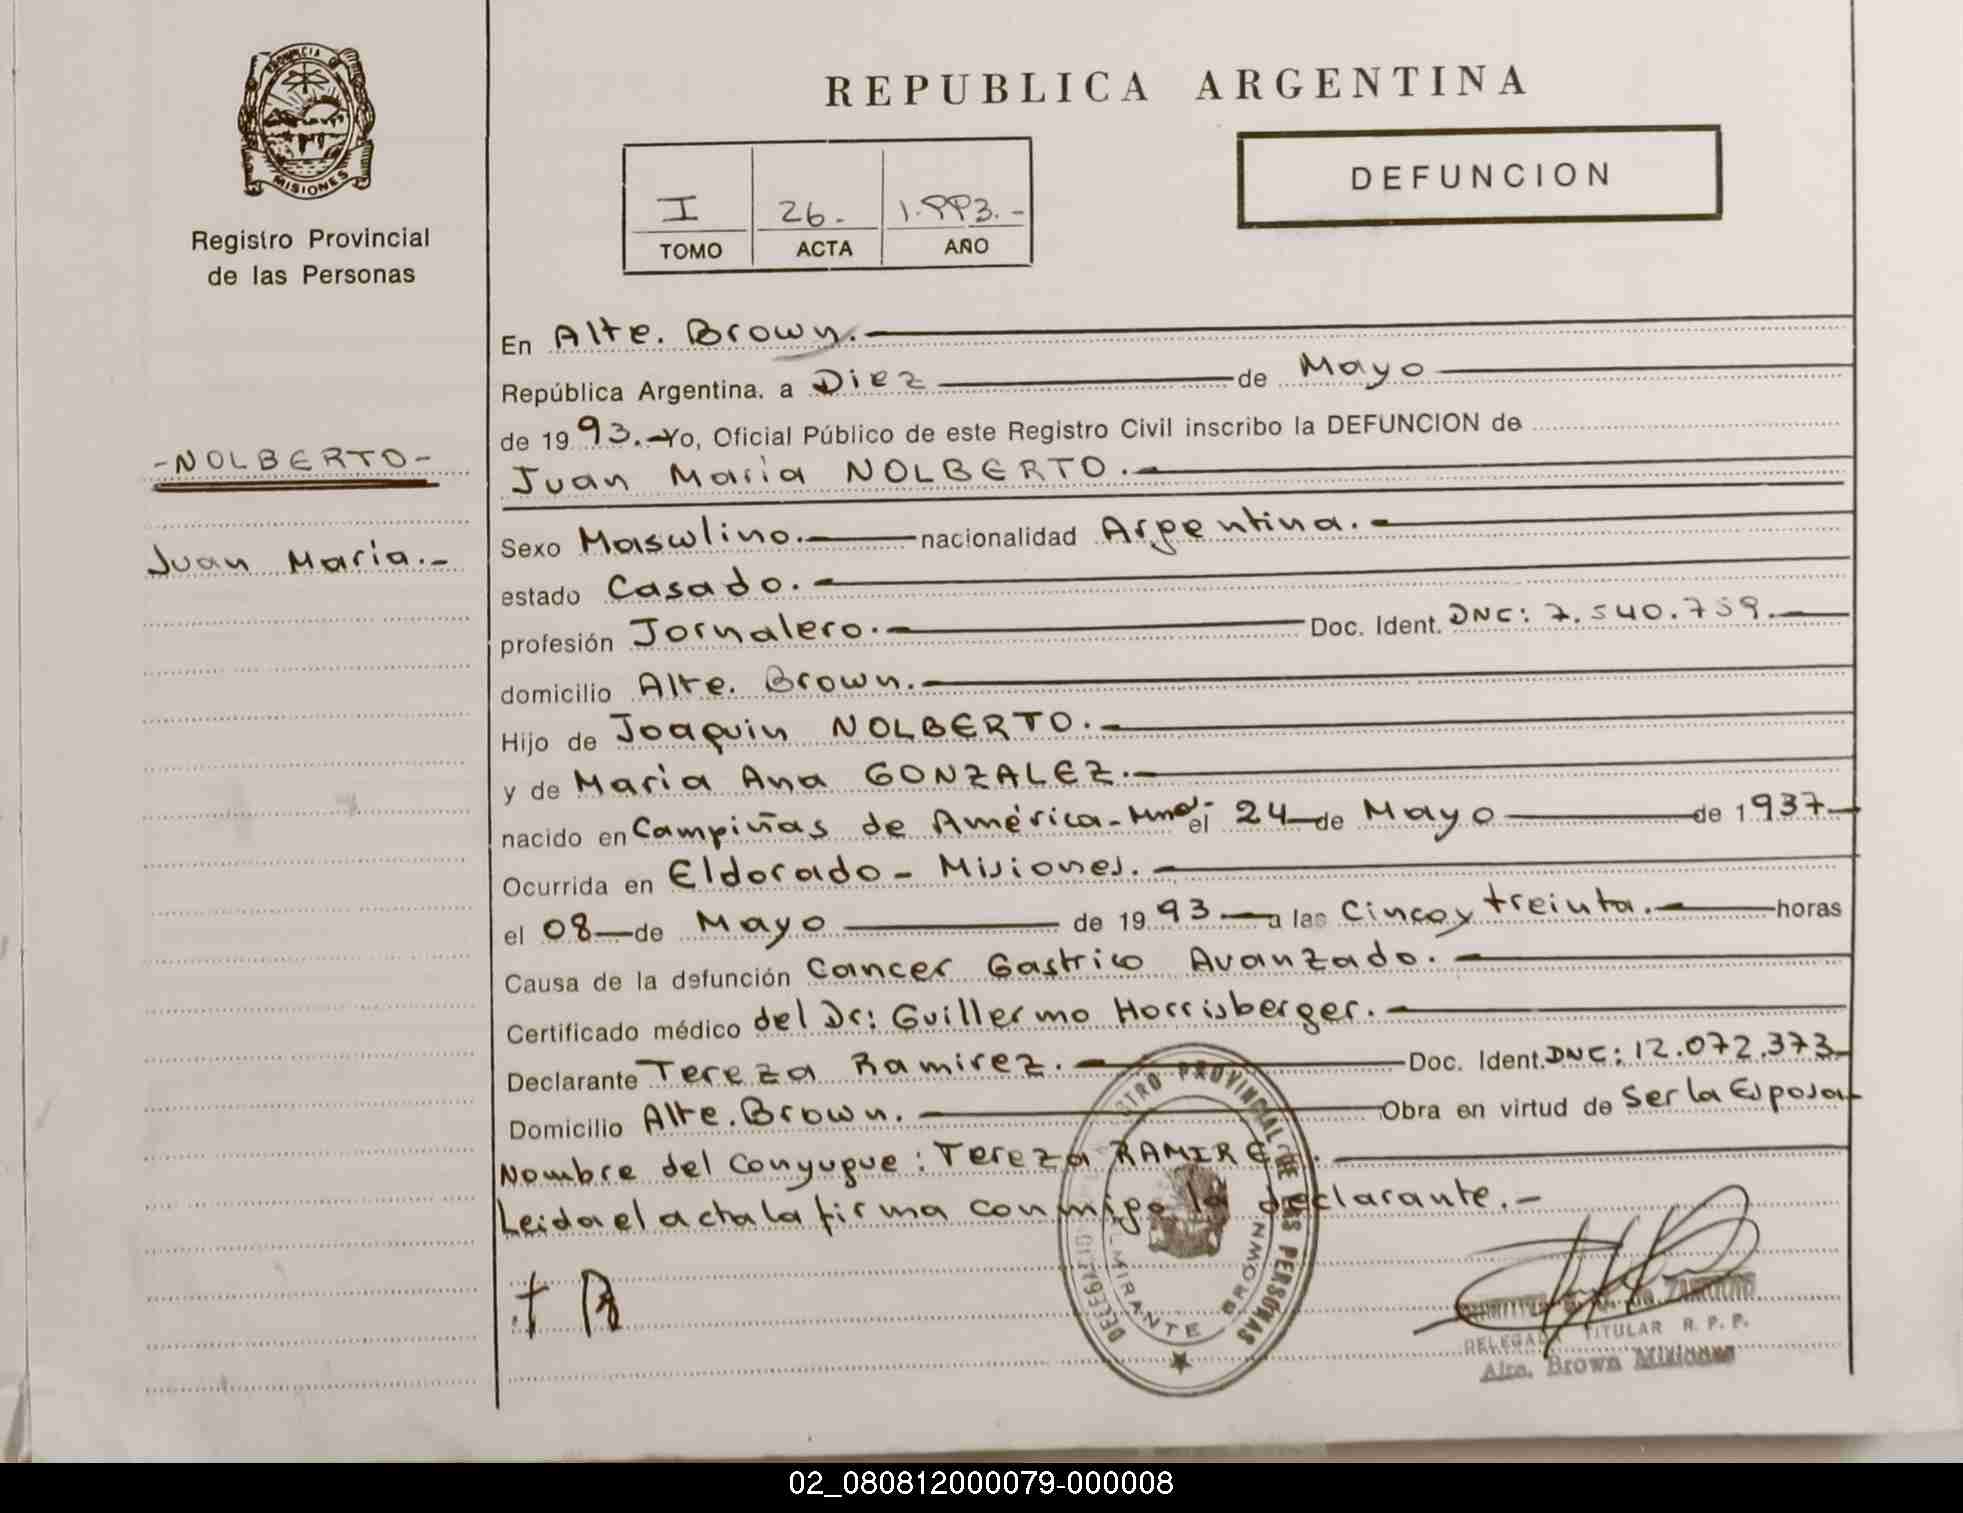 PROVINCIA DE
MISIONES
Registro Provincial
de las Personas
REPUBLICA ARGENTINA
DEFUNCION
I 26.- 1.993.-
TOMO ACTA AÑO
-NOLBERTO-
Juan Maria.-
En Alte. Brown.
República Argentina, a Diez de Mayo
de 1993.- Yo, Oficial Público de este Registro Civil inscribo la DEFUNCION de
Juan Maria NOLBERTO.
Sexo Masculino. nacionalidad Argentina.
estado Casado.
profesión Jornalero. Doc. Ident. DNC: 7.540.759.
domicilio Alte. Brown.
Hijo de Joaquin NOLBERTO.
y de Maria Ana GONZALEZ.
nacido en Campiñas de América- el 24 de Mayo de 1937
Ocurrida en Eldorado - Misiones.
el 08 de Mayo de 1993 a las Cinco y treinta. horas
Causa de la defunción Cancer Gastrico Avanzado.
Certificado médico del Dr: Guillermo Horrisberger.
Declarante Tereza Ramirez. Doc. Ident. DNC: 12.072.373
Domicilio Alte. Brown. Obra en virtud de Ser la Esposa
Nombre del Conyugue: Tereza RAMIREZ.
Leida el acta la firma conmigo la declarante.-
t R
REGISTRO PROVINCIAL DE LAS PERSONAS
DELEGACION
ALMIRANTE BROWN
DELEGADA TITULAR R. P. P.
Alte. Brown Misiones
02_080812000079-000008